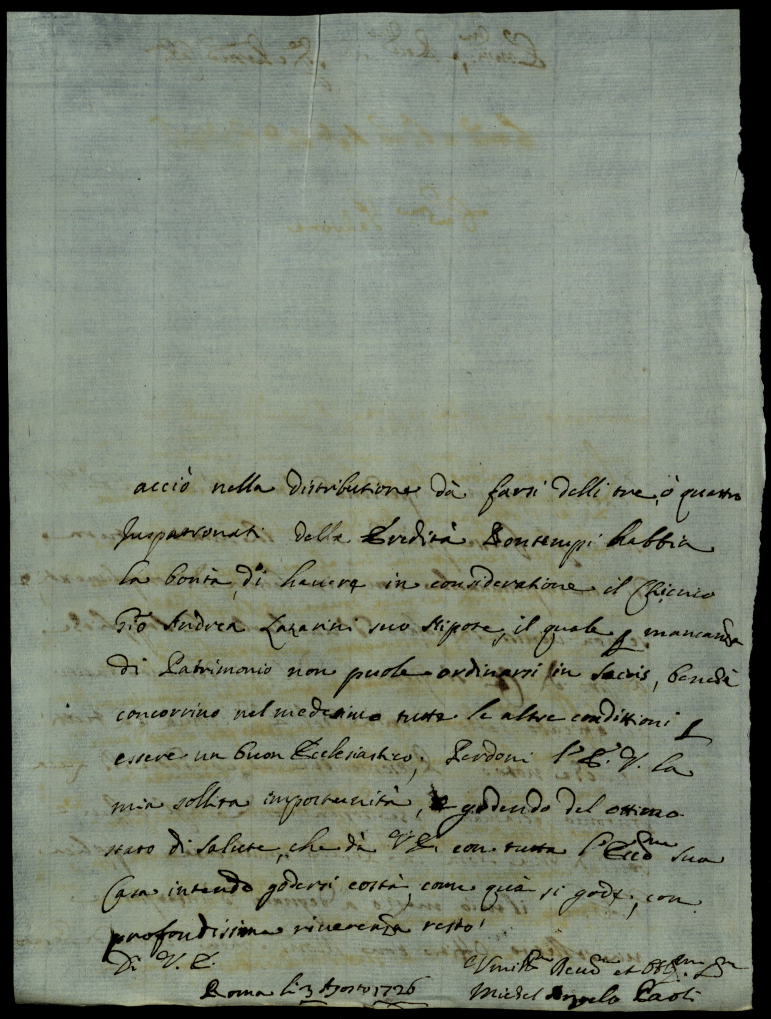 acciò nella distributione dà farsi delli tre, ò quattro
Juspatronati della Eredità Bontempi habbia
la bontà di havere in consideratione il Chierico
Gio Andrea Lazarini suo Nipote, il quale p mancanza
di Patrimonio non puole ordinarsi in Sacris, benchè
concorrino nel medesimo tutte le altre condittioni p
essere un buon Ecclesiastico; Perdoni l'E. V. la
mia sollita importunità, e godendo del ottimo
stato di salute, che dà V E. con tutta l' sua
Casa intendo godersi costà, come quà si gode, con
profondissima riverenza resto
Di V. E.
Roma li 3 Agosto 1726
Michel Angelo Paoli